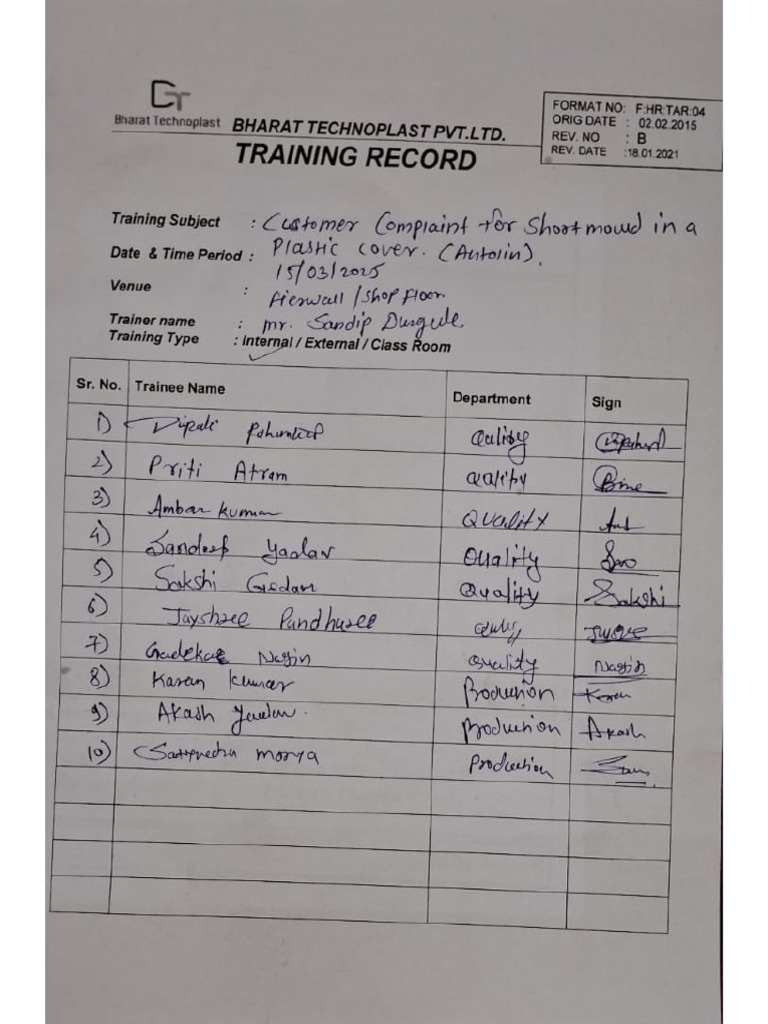 GT
Bharat Technoplast
BHARAT TECHNOPLAST PVT.LTD.
TRAINING RECORD
FORMAT NO: F:HR:TAR:04
ORIG DATE : 02.02.2015
REV. NO : B
REV. DATE :18.01.2021
Training Subject : Customer Complaint for Shoot mould in a
Plastic cover. (Autolin).
Date & Time Period : 15/03/2025
Venue : /Shop Floor
Trainer name : mr. Sandip Durgule
Training Type : Internal / External / Class Room
Sr. No. Trainee Name Department Sign
1) Dipali Quality
2) Priti Atram Quality
3) Ambar kumar QUALITY
4) Sandeep Yadav Quality
5) Sakshi Gedam Quality Sakshi
6) Jayshree Pandhure
7) Gadekar Nagin Quality Nagin
8) Karan Kumar Production Karan
9) Akash Yadav. Production Akash
10) morya Production